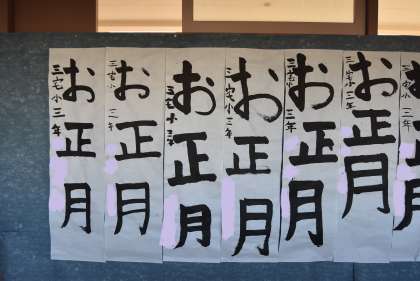 お正月
三宅小 三年
お正月
三宅小 三年
お正月
三宅小 三年
お正月
三宅小 三年
お正月
三宅小 三年
お正月
三宅小 三年
お正月